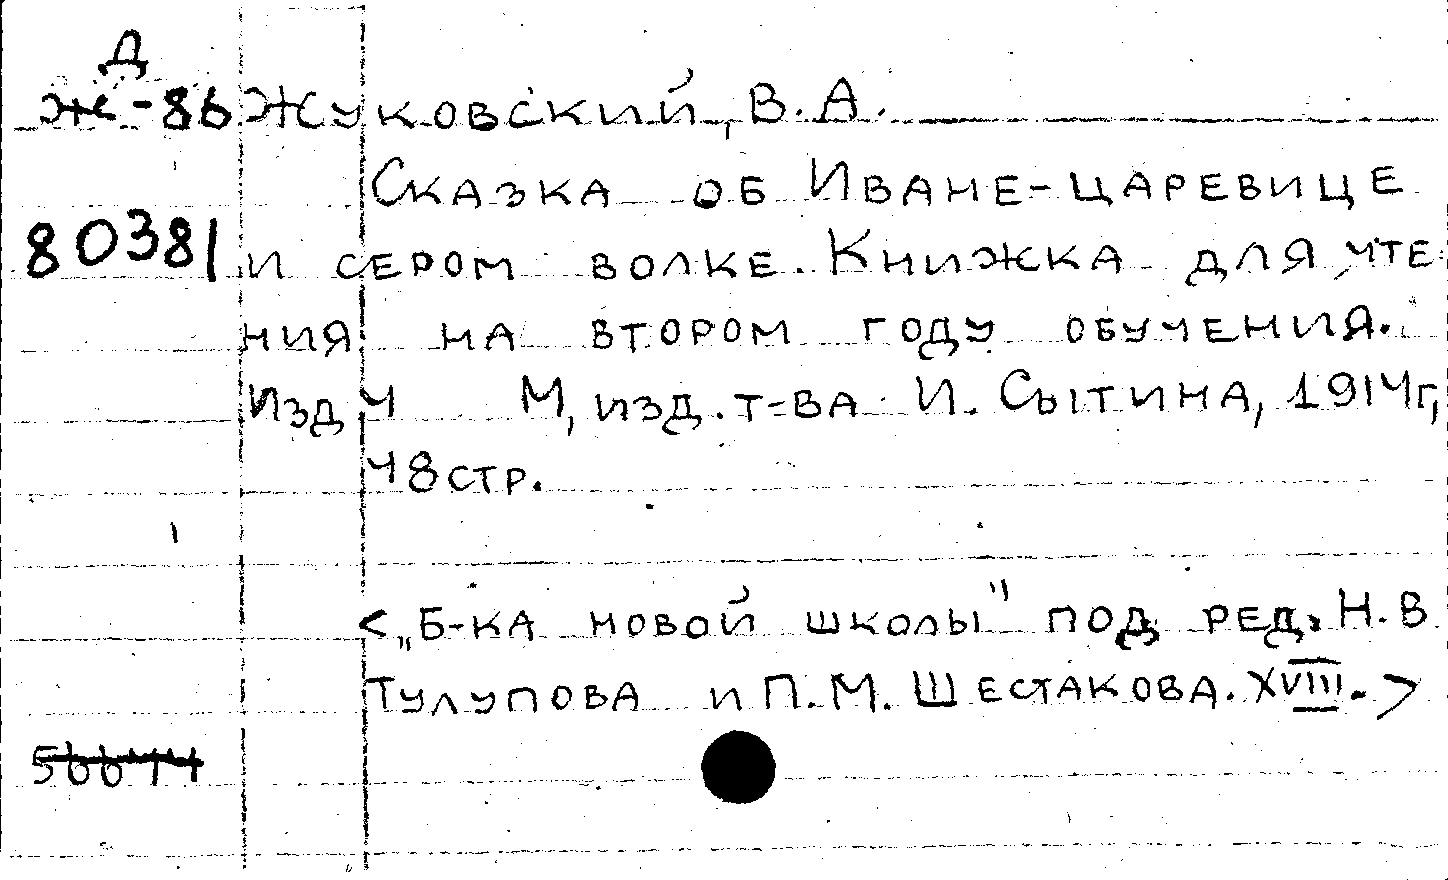 Д
Ж-86 Жуковский, В.А.
Сказка об Иване-царевице
80381 и сером волке. Книжка для чте
ния на втором году обучения.
Изд 4 М, изд. т-ва И. Сытина, 1914г,
48 стр.
<„Б-ка новой школы" под ред. Н.В
Тулупова и П.М. Шестакова. XVIII.>